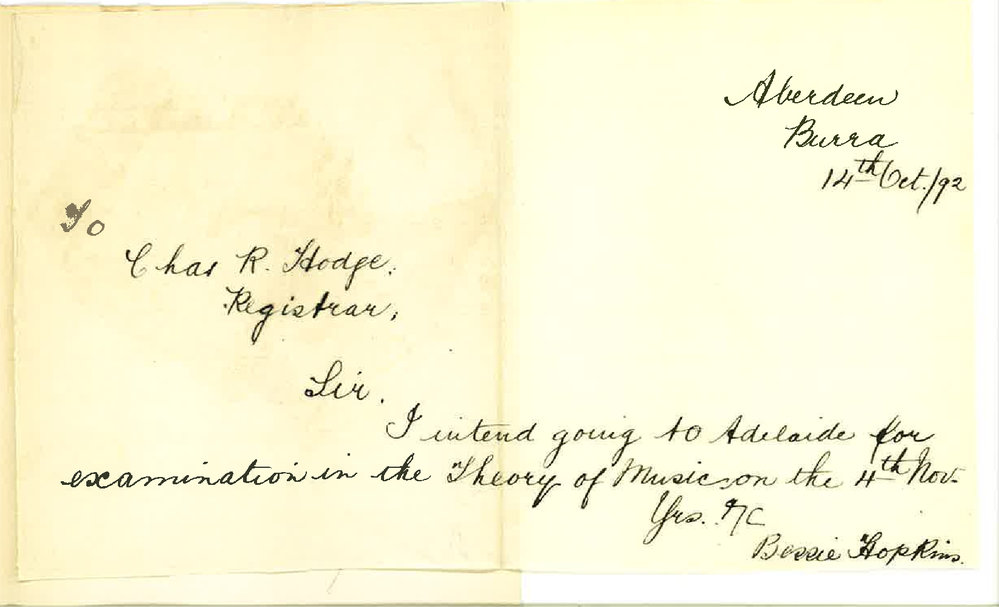 Aberdeen
Burra
14th Oct./92
To
Chas R. Hodge,
Registrar,
Sir.
I intend going to Adelaide for
examination in the Theory of Music on the 4th Nov.
Yrs. &c
Bessie Hopkins.